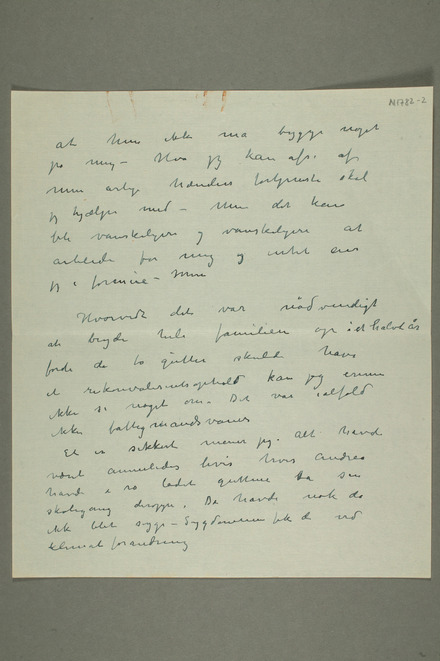 N 1782-2
at hun ikke må bygge noget
på mig – Hva jeg kan afse af
min ærlige Hænders fortjeneste skal
jeg hjælpe med – Men det kan
blit vanskeligere og vanskeligere at
arbeide for mig og intet eier
jeg i formue – Men
Hvorvidt det var nödvendigt
at bryde hele familien op i et halvt år
fordi de to gutter skulde have
et rekonvalesentsophold kan jeg ennu
ikke si noget om. Det var ialfald
ikke fattigmandsvaner
Et er sikkert mener jeg. alt havde
vært annerledes hvis hvis Andrea
havde ladet guttene ta sin
skolegang deroppe. Da havde nok de
ikk blet syge – Sygdommen fik de ved
klimat forandring